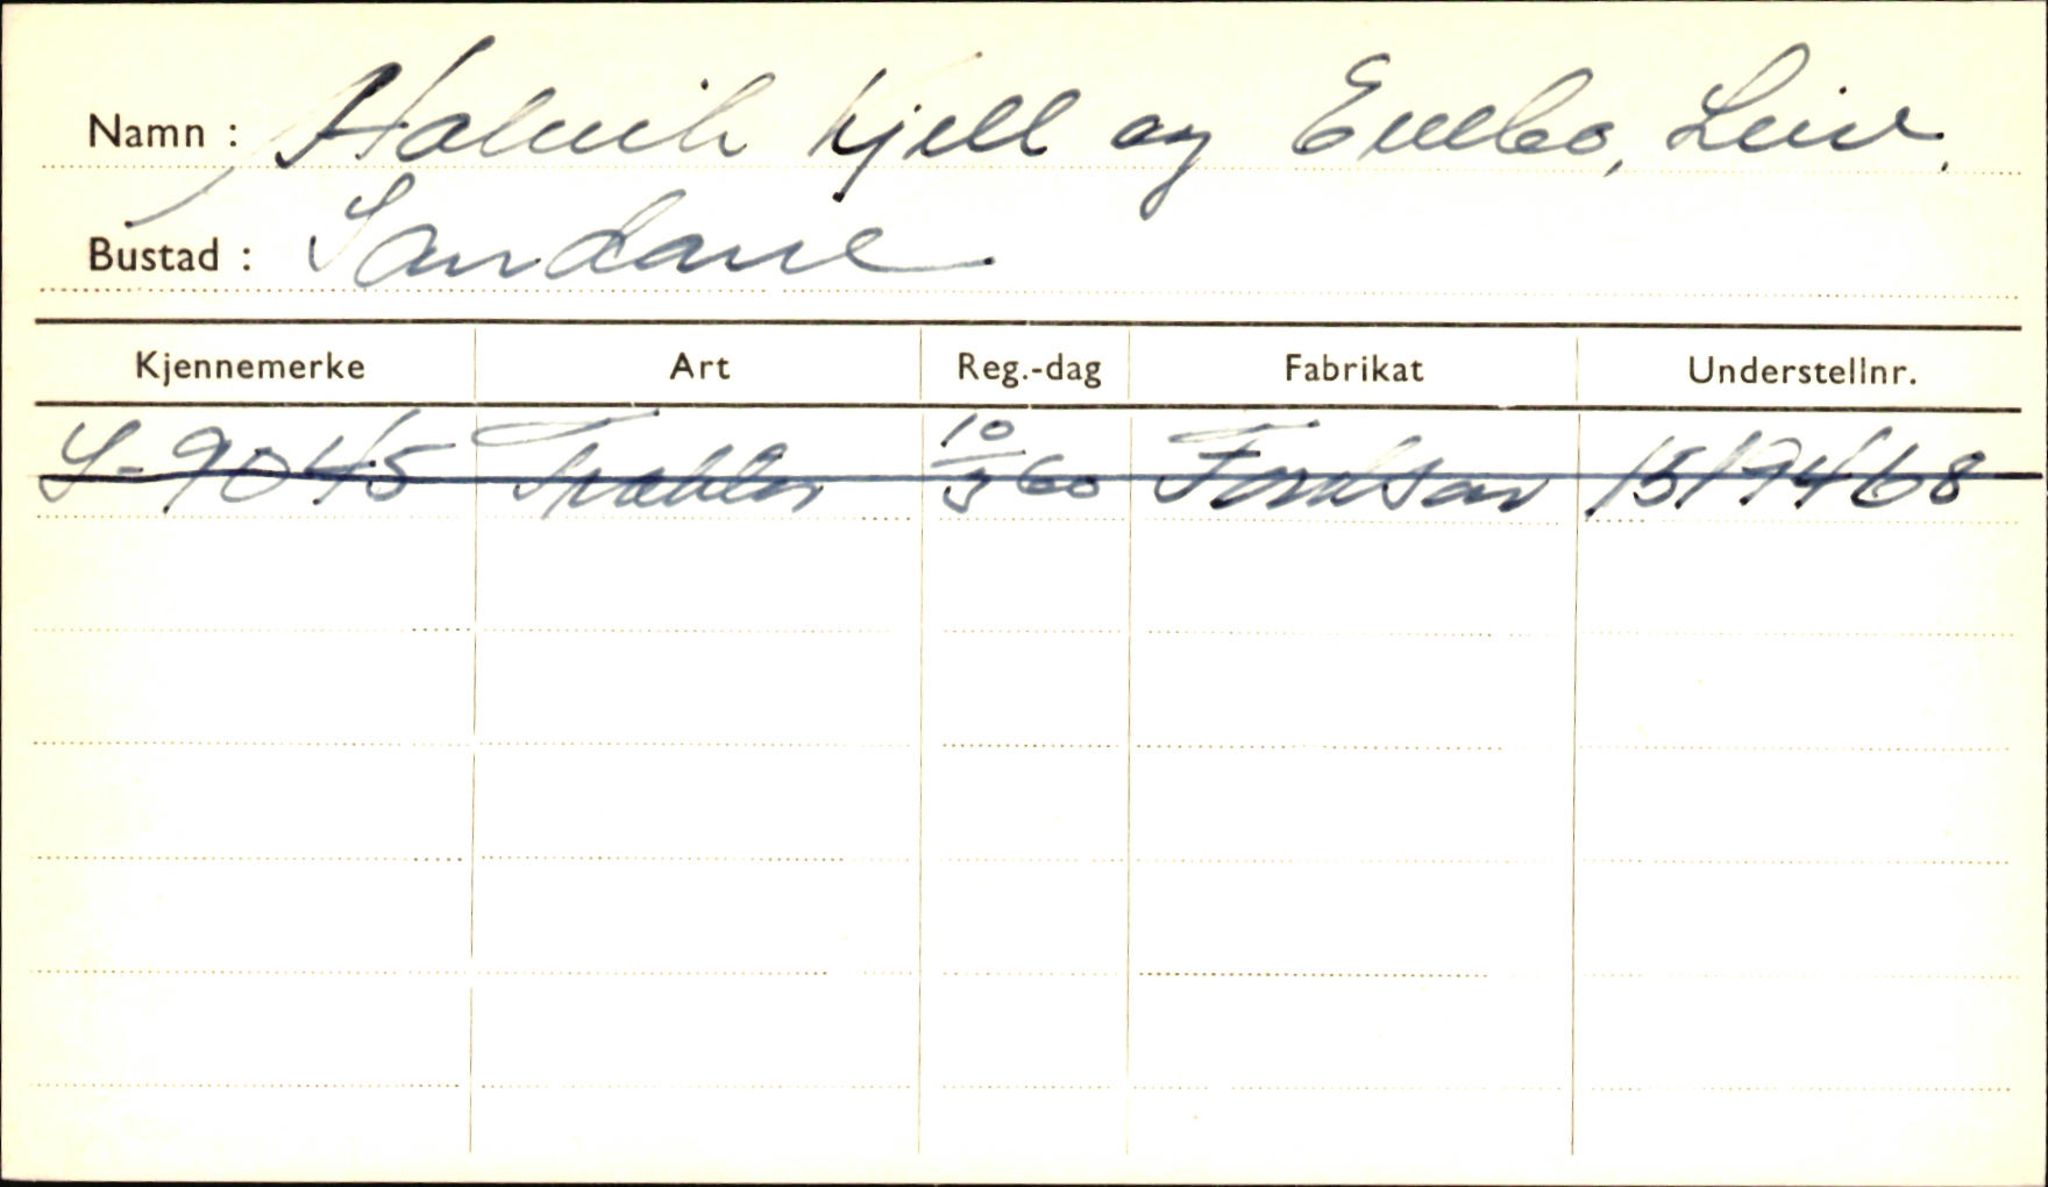 Namn : Holvik Kjell og Evebø, Leiv.
Bustad : Sandane
Kjennemerke Art Reg.-dag Fabrikat Understellnr.
S-9045 Traktor 10/3 60 Fordson 1519468